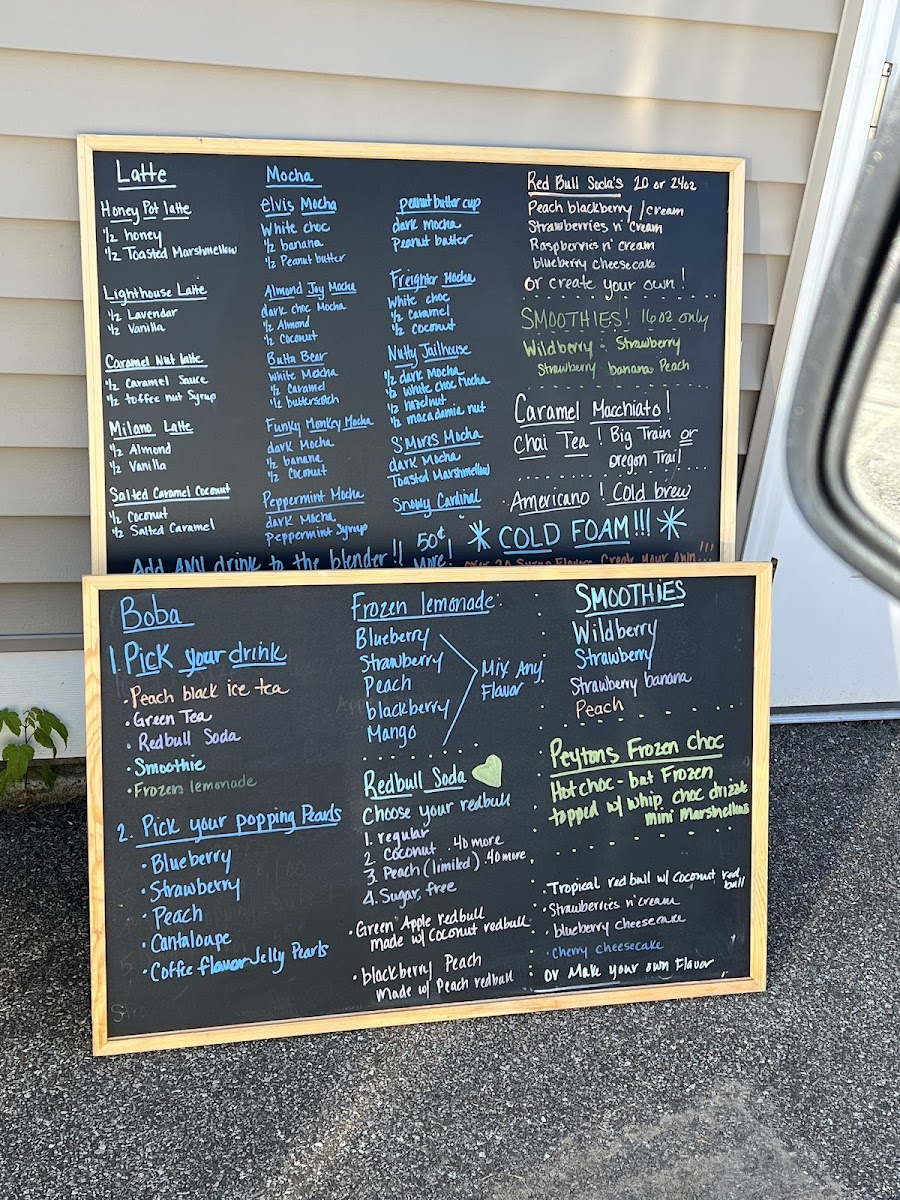 Latte
Honey Pot latte
1/2 honey
1/2 Toasted Marshmellow
Lighthouse Latte
1/2 Lavendar
1/2 Vanilla
Caramel Nut latte
1/2 Caramel Sauce
1/2 toffee nut Syrup
Milano Latte
1/2 Almond
1/2 Vanilla
Salted Caramel Coconut
1/2 Coconut
1/2 Salted Caramel
Mocha
elvis Mocha
White choc
1/2 banana
1/2 Peanut butter
Almond Joy Mocha
dark choc Mocha
1/2 Almond
1/2 Coconut
Butta Bear
White Mocha
1/2 Caramel
1/2 butterscotch
Funky Monkey Mocha
dark Mocha
1/2 banana
1/2 Coconut
Peppermint Mocha
dark Mocha
Peppermint Syrup
peanut butter cup
dark mocha
Peanut butter
Freighter Mocha
White choc
1/2 Caramel
1/2 Coconut
Nutty Jailhouse
1/2 dark Mocha
1/2 White choc Mocha
1/2 hazelnut
1/2 macadamia nut
S'Mores Mocha
dark Mocha
Toasted Marshmellow
Snowy Cardinal
Red Bull Soda's 20 or 24oz
Peach blackberry /cream
Strawberries n' cream
Raspberries n' cream
blueberry cheesecake
or create your own!
SMOOTHIES! 16oz only
Wildberry - Strawberry
Strawberry banana Peach
Caramel Macchiato!
Chai Tea! Big Train or
oregon Trail
Americano! Cold brew
* COLD FOAM!!! *
Add ANY drink to the blender!! 50¢ More!
Create your own!!!
Boba
1. Pick your drink
• Peach black ice tea
• Green Tea
• Redbull Soda
• Smoothie
• Frozen lemonade
2. Pick your popping Pearls
• Blueberry
• Strawberry
• Peach
• Cantaloape
• Coffee flavor Jelly Pearls
Frozen lemonade:
Blueberry
Strawberry
Peach
blackberry
Mango
Mix Any
Flavor
Redbull Soda
Choose your redbull
1. regular
2. Coconut .40 more
3. Peach (limited) .40 more
4. Sugar, free
• Green Apple redbull
made w/ Coconut redbull
• blackberry Peach
Made w/ Peach redbull
SMOOTHIES
Wildberry
Strawberry
Strawberry banana
Peach
Peytons Frozen choc
Hot choc - but Frozen
topped w/ whip choc drizzle
mini Marshmellows
• Tropical red bull w/ Coconut red
bull
• Strawberries n' cream
• blueberry cheesecake
• cherry cheesecake
or Make your own Flavor